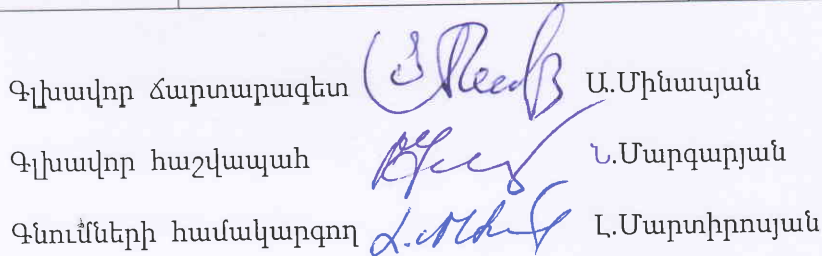 Գլխավոր ճարտարագետ Ա.Մինասյան
Գլխավոր հաշվապահ Ն.Մարգարյան
Գնումների համակարգող Լ.Մարտիրոսյան